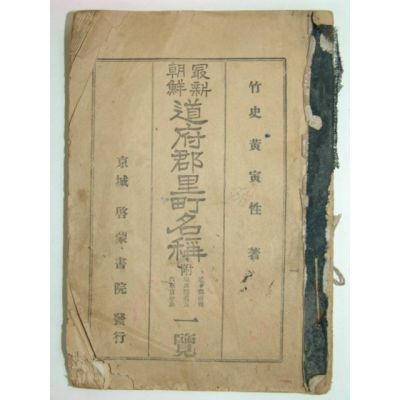 竹史 黃寅性 著
最新
朝鮮
道府郡里町名稱
附
一覽
京城 啓蒙書院 發行